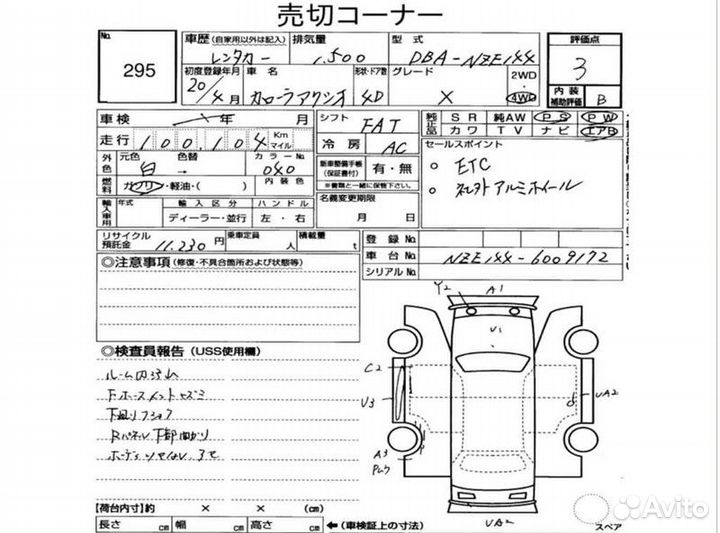 売切コーナー
No. 295
車歴 (自家用以外は記入) レンタカー
排気量 1,500
型式 DBA-NZE144
評価点 3
初度登録年月 20/4月
車名 カローラアクシオ
形状・ドア数 4D
グレード X
2WD
4WD
内装補助評価 B
車検 年 月
シフト FAT
純正品 SR 純AW PS PW
カワ TV ナビ エアB
走行 100,104 Km マイル
冷房 AC
セールスポイント
ETC
社外アルミホイール
外色 元色 白 色替 → カラーNo. 040
新車整備手帳 (保証書付) 有・無
※書類と一緒に保管下さい。
燃料 ガソリン・軽油・( ) 内装色
名義変更期限 月 日
輸入車用 年式 輸入区分 ハンドル
ディーラー・並行 左・右
リサイクル預託金 11,230円
乗車定員 人
積載量 t
登録No.
車台No. NZE144-6009172
シリアルNo.
◎注意事項 (修復・不具合箇所および状態等)
◎検査員報告 (USS使用欄)
ルーム内汚れ
下廻りフショク
Y2 A1
V1
C2
U3
UA2
A3
UA2
スペア
【荷台内寸】約 × × (cm)
長さ cm 幅 cm 高さ cm ←(車検証上の寸法)
Avito